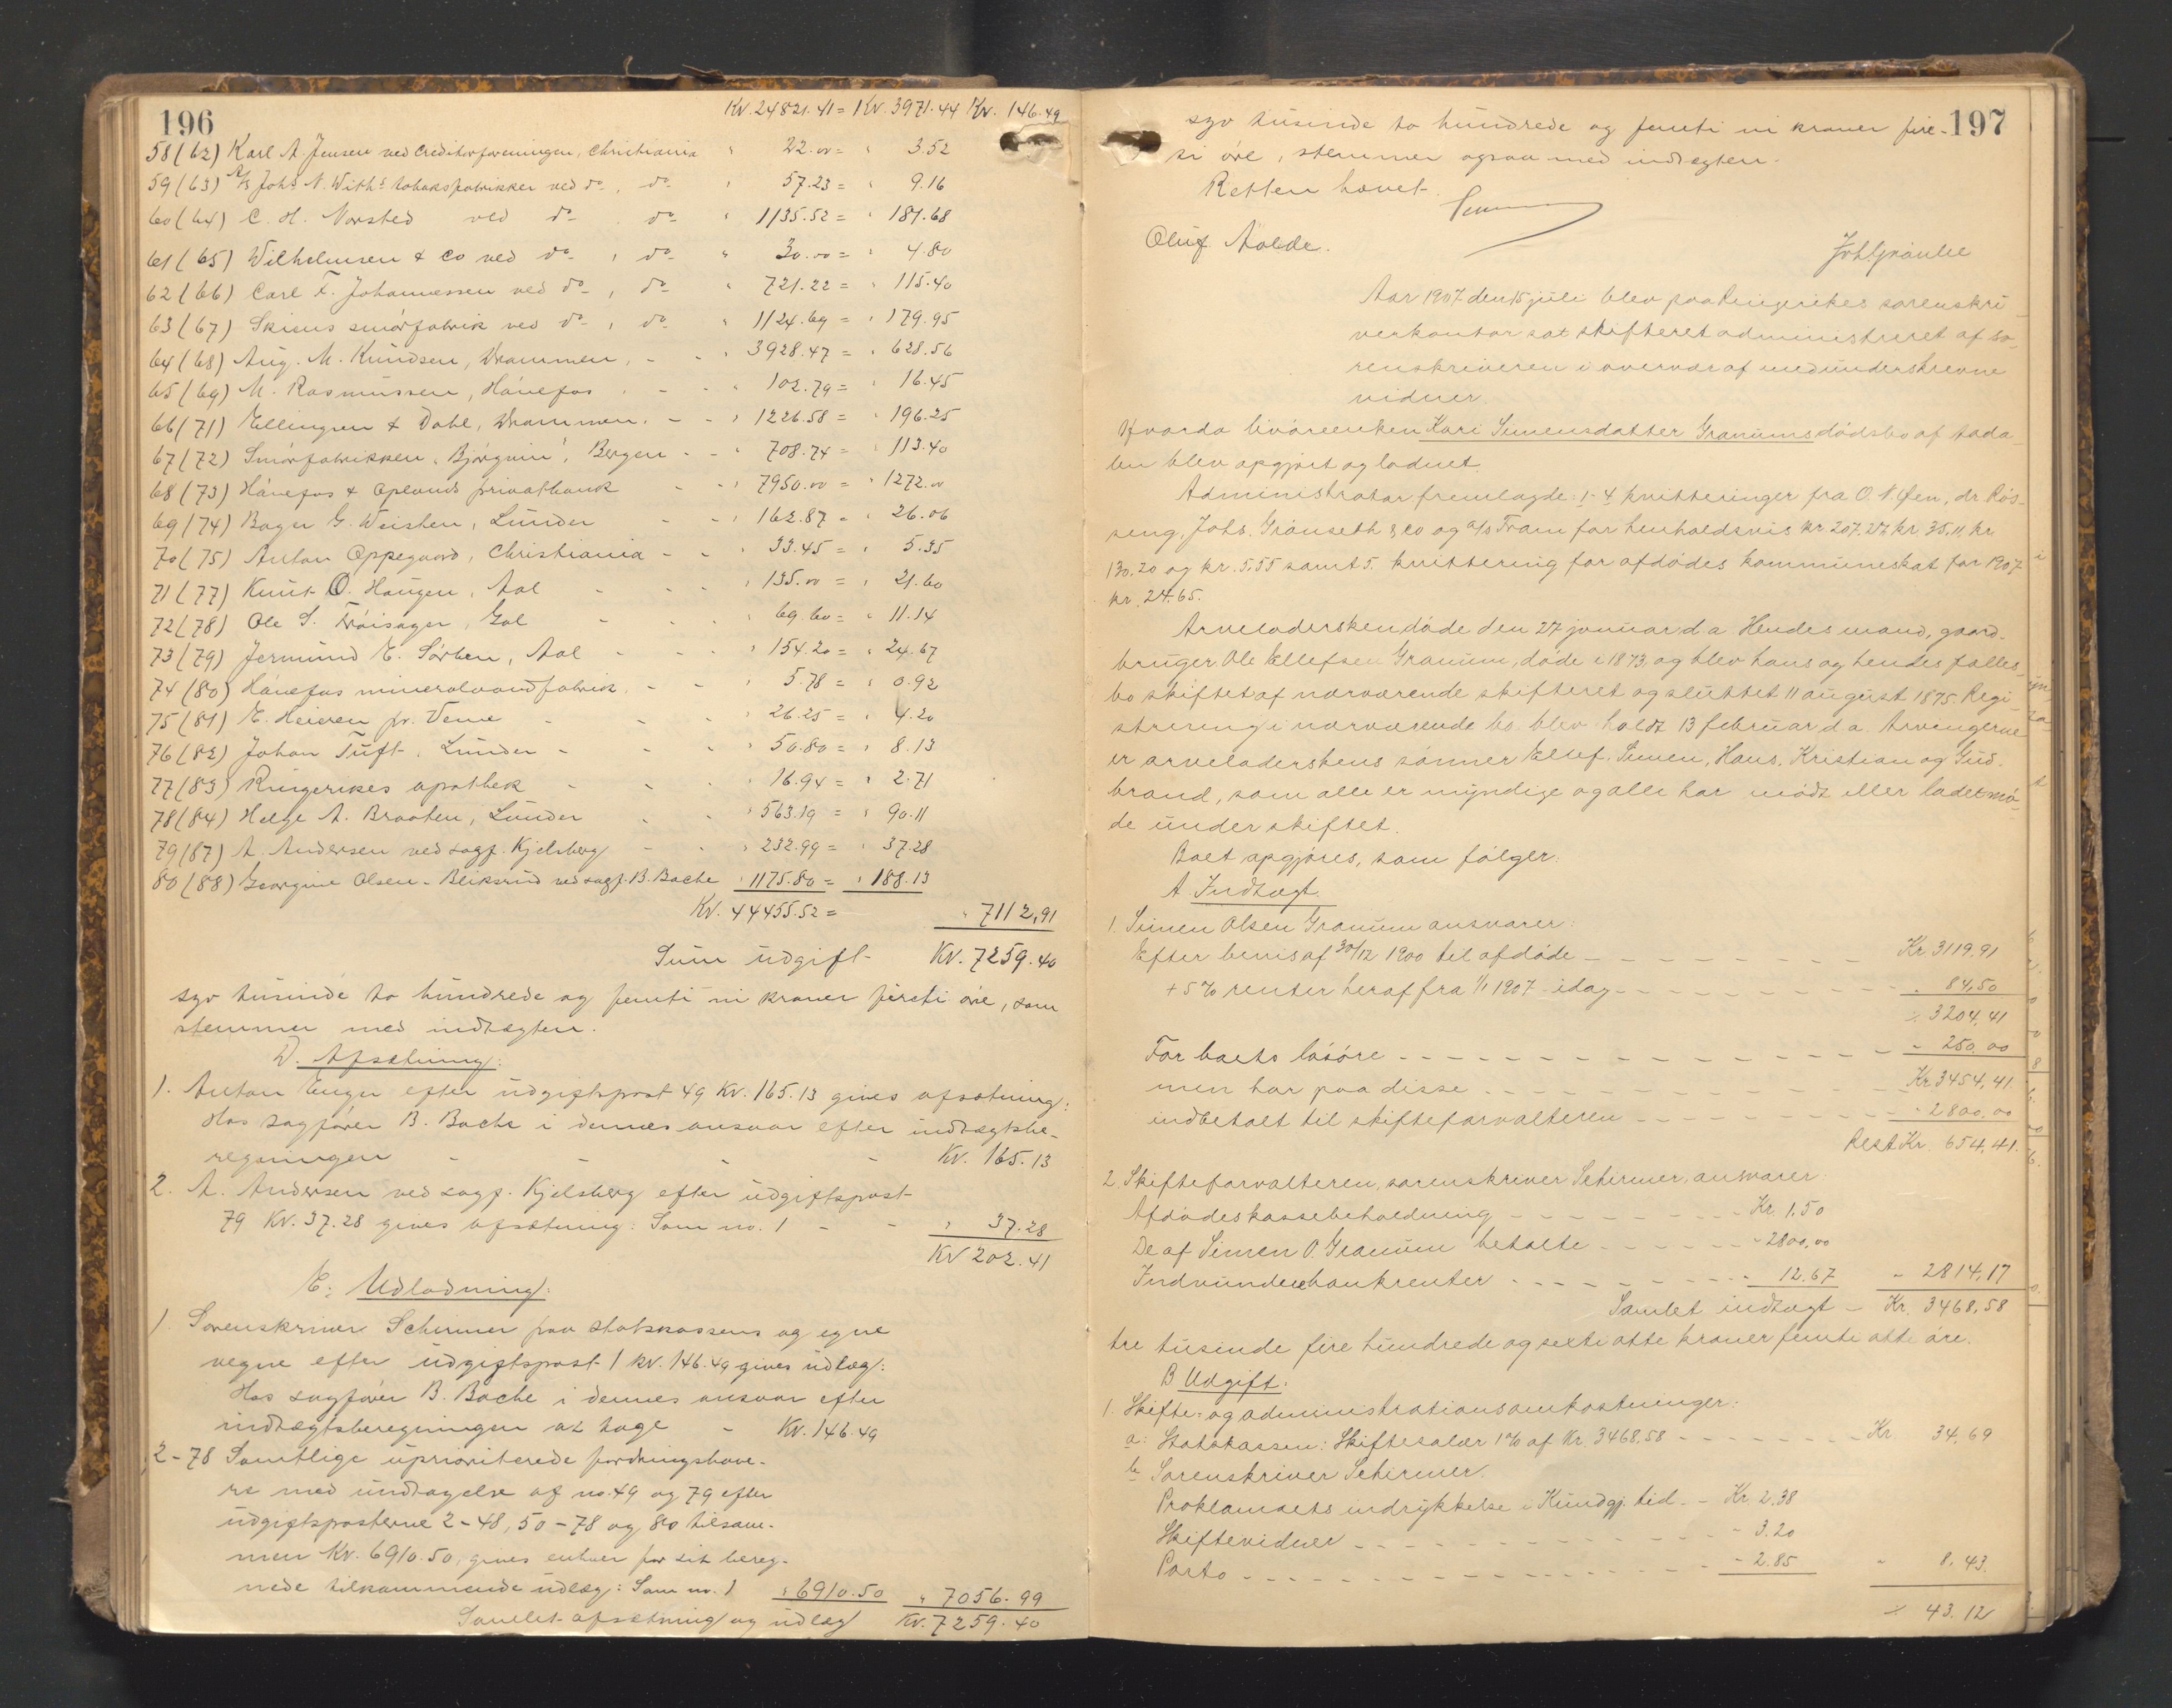 196
Kr. 24821.41 = Kr. 3971.44 Kr. 146.49
58 (62) Karl A. Jensen ved Creditorforeningen, Christiania " 22.00 = " 3.52
59 (63) A/S Johs N. With's tobaksfabrikker ved do, do " 57.23 = " 9.16
60 (64) C. H. Norsted ved do, do " 1135.52 = " 181.68
61 (65) Wilhelmsen & Co ved do, do " 30.00 = " 4.80
62 (66) Carl F. Johannessen ved do, do " 721.22 = " 115.40
63 (67) Skiens smörfabrik ved do, do " 1124.69 = " 179.95
64 (68) Aug. M. Knudsen, Drammen, - - " 3928.47 = " 628.56
65 (69) M. Rasmussen, Hönefos - - " 102.79 = " 16.45
66 (71) Ellingsen & Dahl, Drammen. - - " 1226.58 = " 196.25
67 (72) Smörfabrikken "Björgvin", Bergen - - " 708.74 = " 113.40
68 (73) Hönefos & Oplands privatbank - - " 7950.00 = " 1272.00
69 (74) Bager G. Weisten, Lunder - - " 162.87 = " 26.06
70 (75) Anton Oppegaard, Christiania - - " 33.45 = " 5.35
71 (77) Knut O. Haugen, Aal - - " 135.00 = " 21.60
72 (78) Ole S. Tröisager, Gol - - " 69.60 = " 11.14
73 (79) Jermund E. Sörben, Aal - - " 154.20 = " 24.67
74 (80) Hönefos mineralvandfabrik. - - " 5.78 = " 0.92
75 (81) E. Heieren pr. Veme - - " 26.25 = " 4.20
76 (82) Johan Tuft, Lunder - - " 50.80 = " 8.13
77 (83) Ringerikes apothek - - " 16.94 = " 2.71
78 (84) Helge A. Braaten, Lunder - - " 563.19 = " 90.11
79 (87) A. Andersen ved sagf. Kjelsberg - - " 232.99 = " 37.28
80 (88) Georgine Olsen-Bliksrud ved sagf. B. Bache " 1175.80 = " 188.13
Kr. 44455.52 = " 7112,91
Sum udgift Kr. 7259.40
syv tusinde to hundrede og femti ni kroner firti öre, som
stemmer med indtægten.
D. Afsætning:
1. Anton Enger efter udgiftspost 49 Kr. 165.13 gives afsætning:
Hos sagförer B. Bache i dennes ansvar efter indtægtsbe-
regningen - - - - Kr. 165.13
2. A. Andersen ved sagf. Kjelsberg efter udgiftspost
79 Kr. 37.28 gives afsætning: Som no. 1 - - " 37.28
Kr 202.41
E. Udlodning:
1. Sorenskriver Schirmer paa statskassens og egne
vegne efter udgiftspost 1 kr. 146.49 gives udlæg:
Hos sagförer B. Bache i dennes ansvar efter
indtægtsberegningen at tage - Kr. 146.49
2-78 Samtlige uprioriterede fordringshave-
re med undtagelse af no. 49 og 79 efter
udgiftsposterne 2-48, 50-78 og 80 tilsam-
men Kr. 6910.50, gives enhver for sit bereg-
nede tilkommende udlæg: Som no. 1 " 6910.50 " 7056.99
Samlet afsætning og udlæg Kr. 7259.40
197
syv tusinde to hundrede og femti ni kroner fir-
ti öre, stemmer ogsaa med indtægten.
Retten hævet.
Oluf Aalde.
Aar 1907 den 15 juli blev paa Ringerikes sorenskri
verkontor sat skifteret administreret af so-
renskriveren i overvær af medunderskrevne
vidner.
Hvorda livöreenken Kari Simensdatter Granums dödsbo af Aada
len blev opgjort og lodnet.
Administrator fremlagde: 1-4 kvitteringer fra O. N. Öen, dr Rös-
seng, Johs. Granseth & co og a/s Fram for henholdsvis kr 207.27, kr. 35.11, kr.
130.20 og kr. 5.55 samt 5. kvittering for afdödes kommuneskat for 1907
kr. 24.65.
Arveladersken döde den 27 januar d.a. Hendes mand, gaard-
bruger Ole Ellefsen Granum, döde i 1873, og blev hans og hendes fælles-
bo skiftet af nærværende skifteret og sluttet 11 august 1875. Regi-
strering i nærværende bo blev holdt 13 februar d.a. Arvingerne
er arveladerskens sönner Ellef, Simen, Hans, Kristian og Gud-
brand, som alle er myndige og alle har mödt eller ladet mö-
de under skiftet.
Boet opgjöres, som fölger:
A Indtægt.
1. Simen Olsen Granum ansvarer:
Efter bevis af 30/12 1900 til afdöde - - - Kr. 3119.91
+ 5 % renter heraf fra 1/1 1907 - idag - - - " 84,50
" 3204,41
For boets lösöre - - - " 250,00
Kr. 3454,41.
men har paa disse - - -
indbetalt til skifteforvalteren - - - " 2800,00
Rest Kr. 654,41.
2. Skifteforvalteren, sorenskriver Schirmer, ansvarer:
Afdödes kassebeholdning - - - Kr. 1,50
De af Simen O. Granum betalte - - - " 2800,00
Indvundne bankrenter - - - " 12.67 " 2814,17
Samlet indtægt - Kr. 3468,58
tre tusinde fire hundrede og sexti otte kroner femti otte öre.
B Udgift.
1. Skifte- og administrationsomkostninger:
a: Statskassen: Skiftesalær 1 % af Kr. 3468,58 - - - Kr. 34,69
b. Sorenskriver Schirmer.
Proklamaets indrykkelse i Kundgj. tid. - Kr. 2.38
Skiftevidner - - - " 3.20
Porto - - - " 2.85 " 8,43.
" 43.12